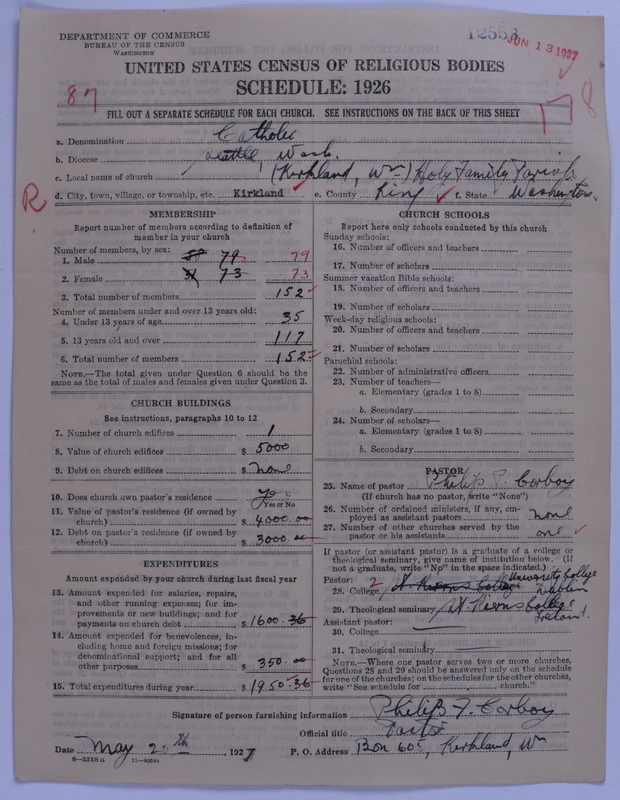 DEPARTMENT OF COMMERCE
BUREAU OF THE CENSUS
WASHINGTON
JUN 13 1927
UNITED STATES CENSUS OF RELIGIOUS BODIES
SCHEDULE: 1926
87
FILL OUT A SEPARATE SCHEDULE FOR EACH CHURCH. SEE INSTRUCTIONS ON THE BACK OF THIS SHEET
a. Denomination Catholic
b. Diocese Seattle, Wash.
c. Local name of church (Kirkland, Wn) Holy Family Parish
d. City, town, village, or township, etc. Kirkland e. County King f. State Washington.
R
MEMBERSHIP
Report number of members according to definition of
member in your church
Number of members, by sex:
1. Male 79 79
2. Female 73 73
3. Total number of members 152
Number of members under and over 13 years old:
4. Under 13 years of age 35
5. 13 years old and over 117
6. Total number of members 152
NOTE.—The total given under Question 6 should be the
same as the total of males and females given under Question 3.
CHURCH BUILDINGS
See instructions, paragraphs 10 to 12
7. Number of church edifices 1
8. Value of church edifices $ 5000
9. Debt on church edifices $ none
10. Does church own pastor's residence Yes
Yes or No
11. Value of pastor's residence (if owned by
church) $ 4000.00
12. Debt on pastor's residence (if owned by
church) $ 3000.00
EXPENDITURES
Amount expended by your church during last fiscal year
13. Amount expended for salaries, repairs,
and other running expenses; for im-
provements or new buildings; and for
payments on church debt $ 1600.36
14. Amount expended for benevolences, in-
cluding home and foreign missions; for
denominational support; and for all
other purposes $ 350.00
15. Total expenditures during year $ 1950.36
CHURCH SCHOOLS
Report here only schools conducted by this church
Sunday schools:
16. Number of officers and teachers
17. Number of scholars
Summer vacation Bible schools:
18. Number of officers and teachers
19. Number of scholars
Week-day religious schools:
20. Number of officers and teachers
21. Number of scholars
Parochial schools:
22. Number of administrative officers
23. Number of teachers—
a. Elementary (grades 1 to 8)
b. Secondary
24. Number of scholars—
a. Elementary (grades 1 to 8)
b. Secondary
PASTOR
25. Name of pastor Philip F. Corboy
(If church has no pastor, write "None")
26. Number of ordained ministers, if any, em-
ployed as assistant pastors none
27. Number of other churches served by the
pastor or his assistants one
If pastor (or assistant pastor) is a graduate of a college or
theological seminary, give name of institution below. (If
not a graduate, write "No" in the space indicated.)
Pastor: 2 University College
28. College St Kierans College Dublin
29. Theological seminary St Kierans College
Assistant pastor: Ireland.
30. College
31. Theological seminary
NOTE.—Where one pastor serves two or more churches,
Questions 28 and 29 should be answered only on the schedule
for one of the churches; on the schedules for the other churches,
write "See schedule for church."
Signature of person furnishing information Philip F. Corboy
Official title Pastor
Date May 20th 1927 P. O. Address Box 605, Kirkland, Wn
8—5318 a